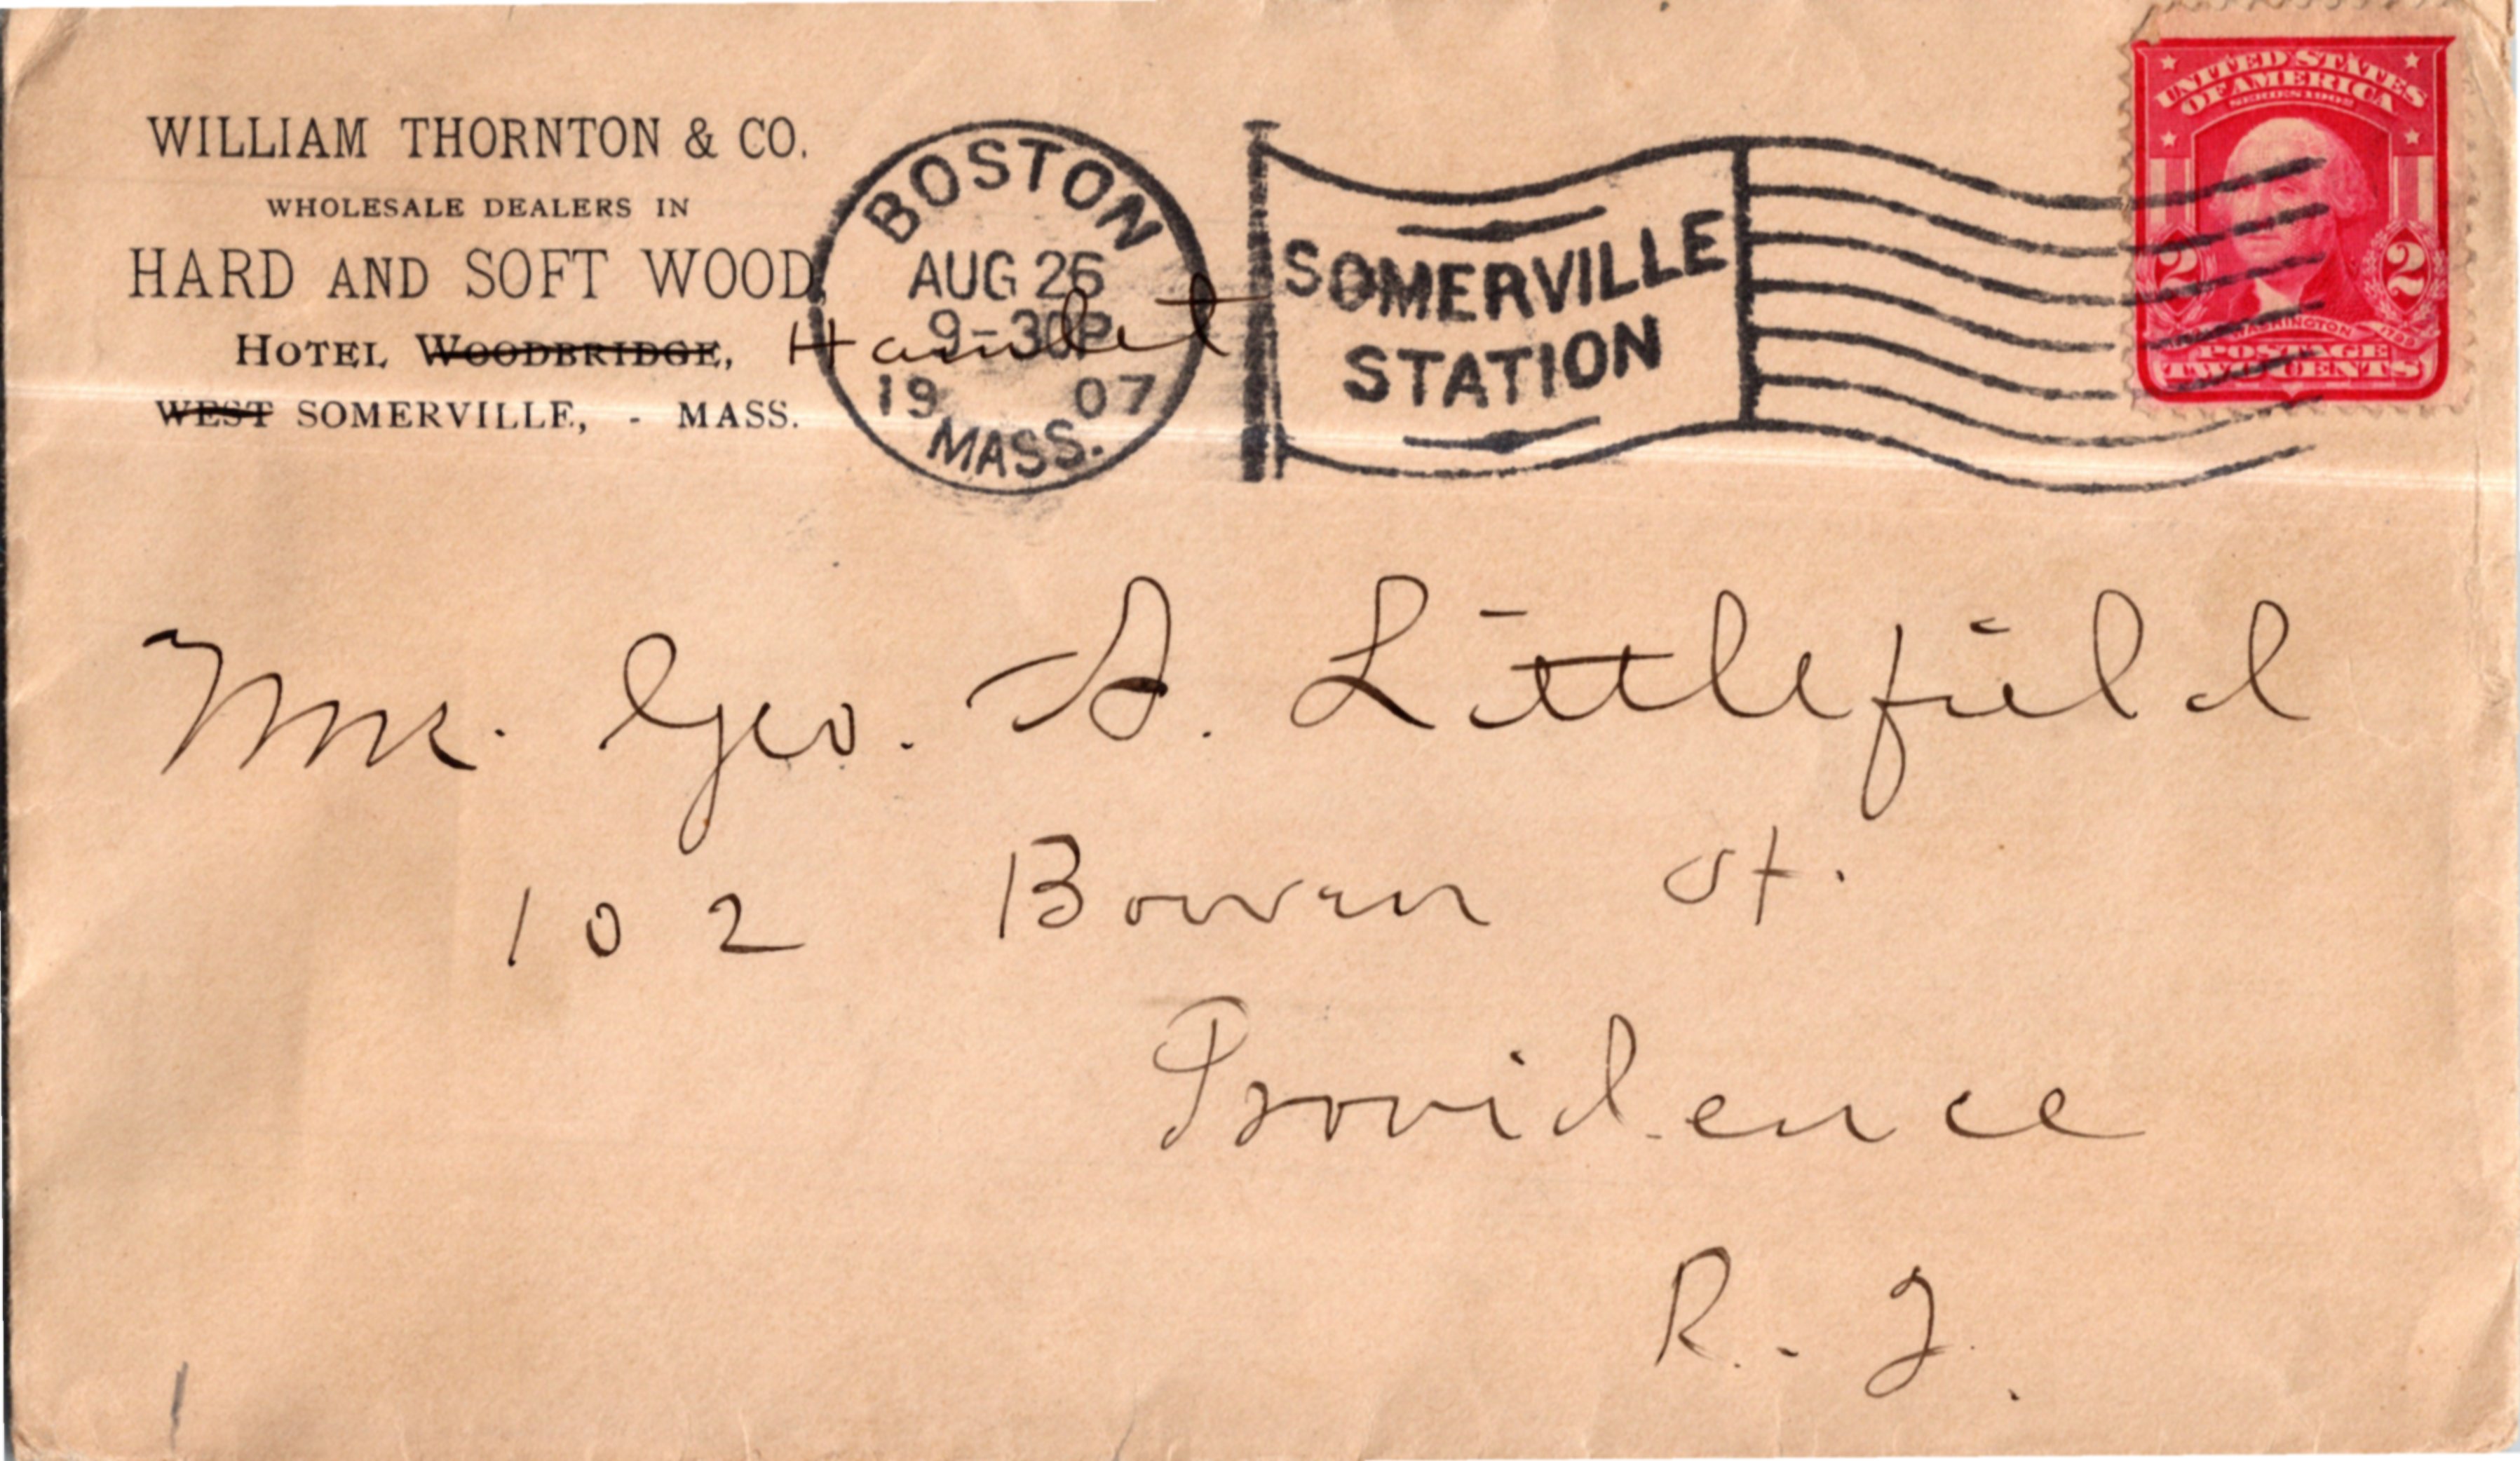 WILLIAM THORNTON & CO.
WHOLESALE DEALERS IN
HARD AND SOFT WOOD,
HOTEL WOODBRIDGE, Hamlet
WEST SOMERVILLE, - MASS.
BOSTON
AUG 26
9-30P
19 07
MASS.
SOMERVILLE
STATION
UNITED STATES
OF AMERICA
SERIES 1902
2 2
WASHINGTON
POSTAGE
TWO CENTS
Mr. Geo. A. Littlefield
102 Bowen St.
Providence
R. I.